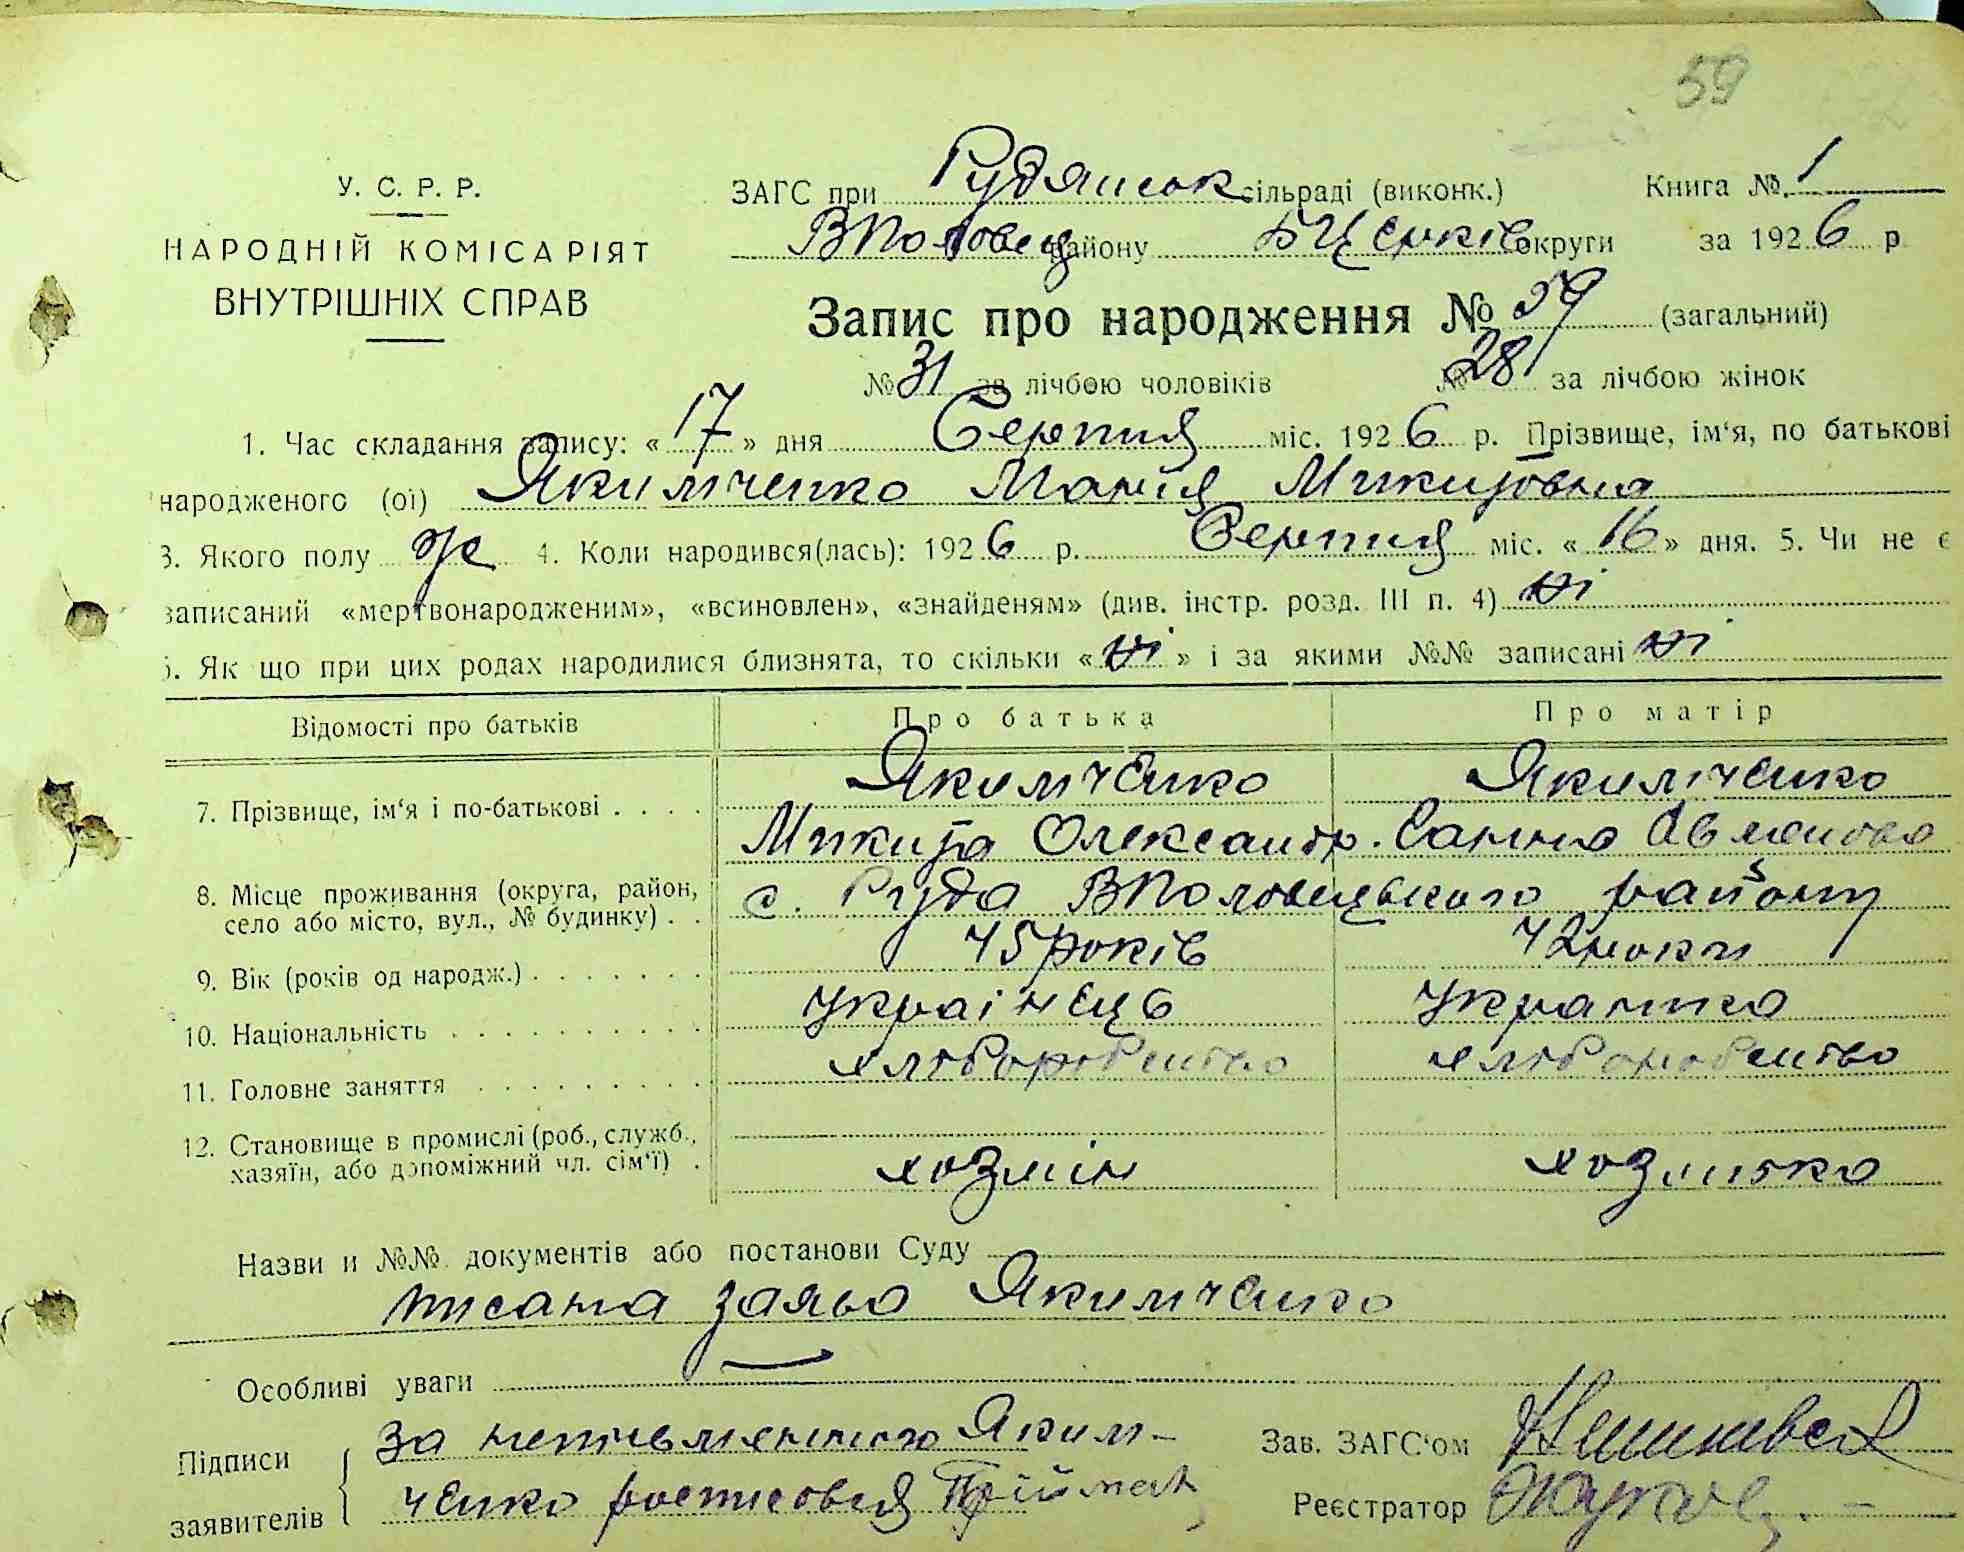 59
У. С. Р. Р.
НАРОДНІЙ КОМІСАРІЯТ
ВНУТРІШНІХ СПРАВ
ЗАГС при Рудянськ сільраді (виконк.) Книга № 1
ВПоловец району БЦерків округи за 1926 р
Запис про народження № 59 (загальний)
№ 31 за лічбою чоловіків № 28 за лічбою жінок
1. Час складання запису: « 17 » дня Серпня міс. 1926 р. Прізвище, ім‘я, по батькові
народженого (ої) Якимченко Марія Микитовна
3. Якого полу ж 4. Коли народився(лась): 1926 р. Серпня міс. « 16 » дня. 5. Чи не є
записаний «мертвонародженим», «всиновлен», «знайденям» (див. інстр. розд. III п. 4) ні
6. Як що при цих родах народилися близнята, то скільки « ні » і за якими №№ записані ні
Відомості про батьків Про батька Про матір
7. Прізвище, ім‘я і по-батькові . . . . Якимченко Якимченко
Микита Олександр. Ганна
8. Місце проживання (округа, район, село або місто, вул., № будинку) . . с. Руда ВПоловецького району
9. Вік (років од народж.) . . . . . . . 45 років 42 роки
10. Національність . . . . . . . . . . Українець Украінка
11. Головне заняття . . . . . . . . . хліборобство хліборобство
12. Становище в промислі (роб., служб., хазяїн, або допоміжний чл. сім‘ї) . хозяін хозяйка
Назви и №№ документів або постанови Суду
писана заява Якимченко
Особливі уваги —
Підписи заявителів За неписьменного Яким-
ченко росписовся Приймак
Зав. ЗАГС‘ом
Реєстратор